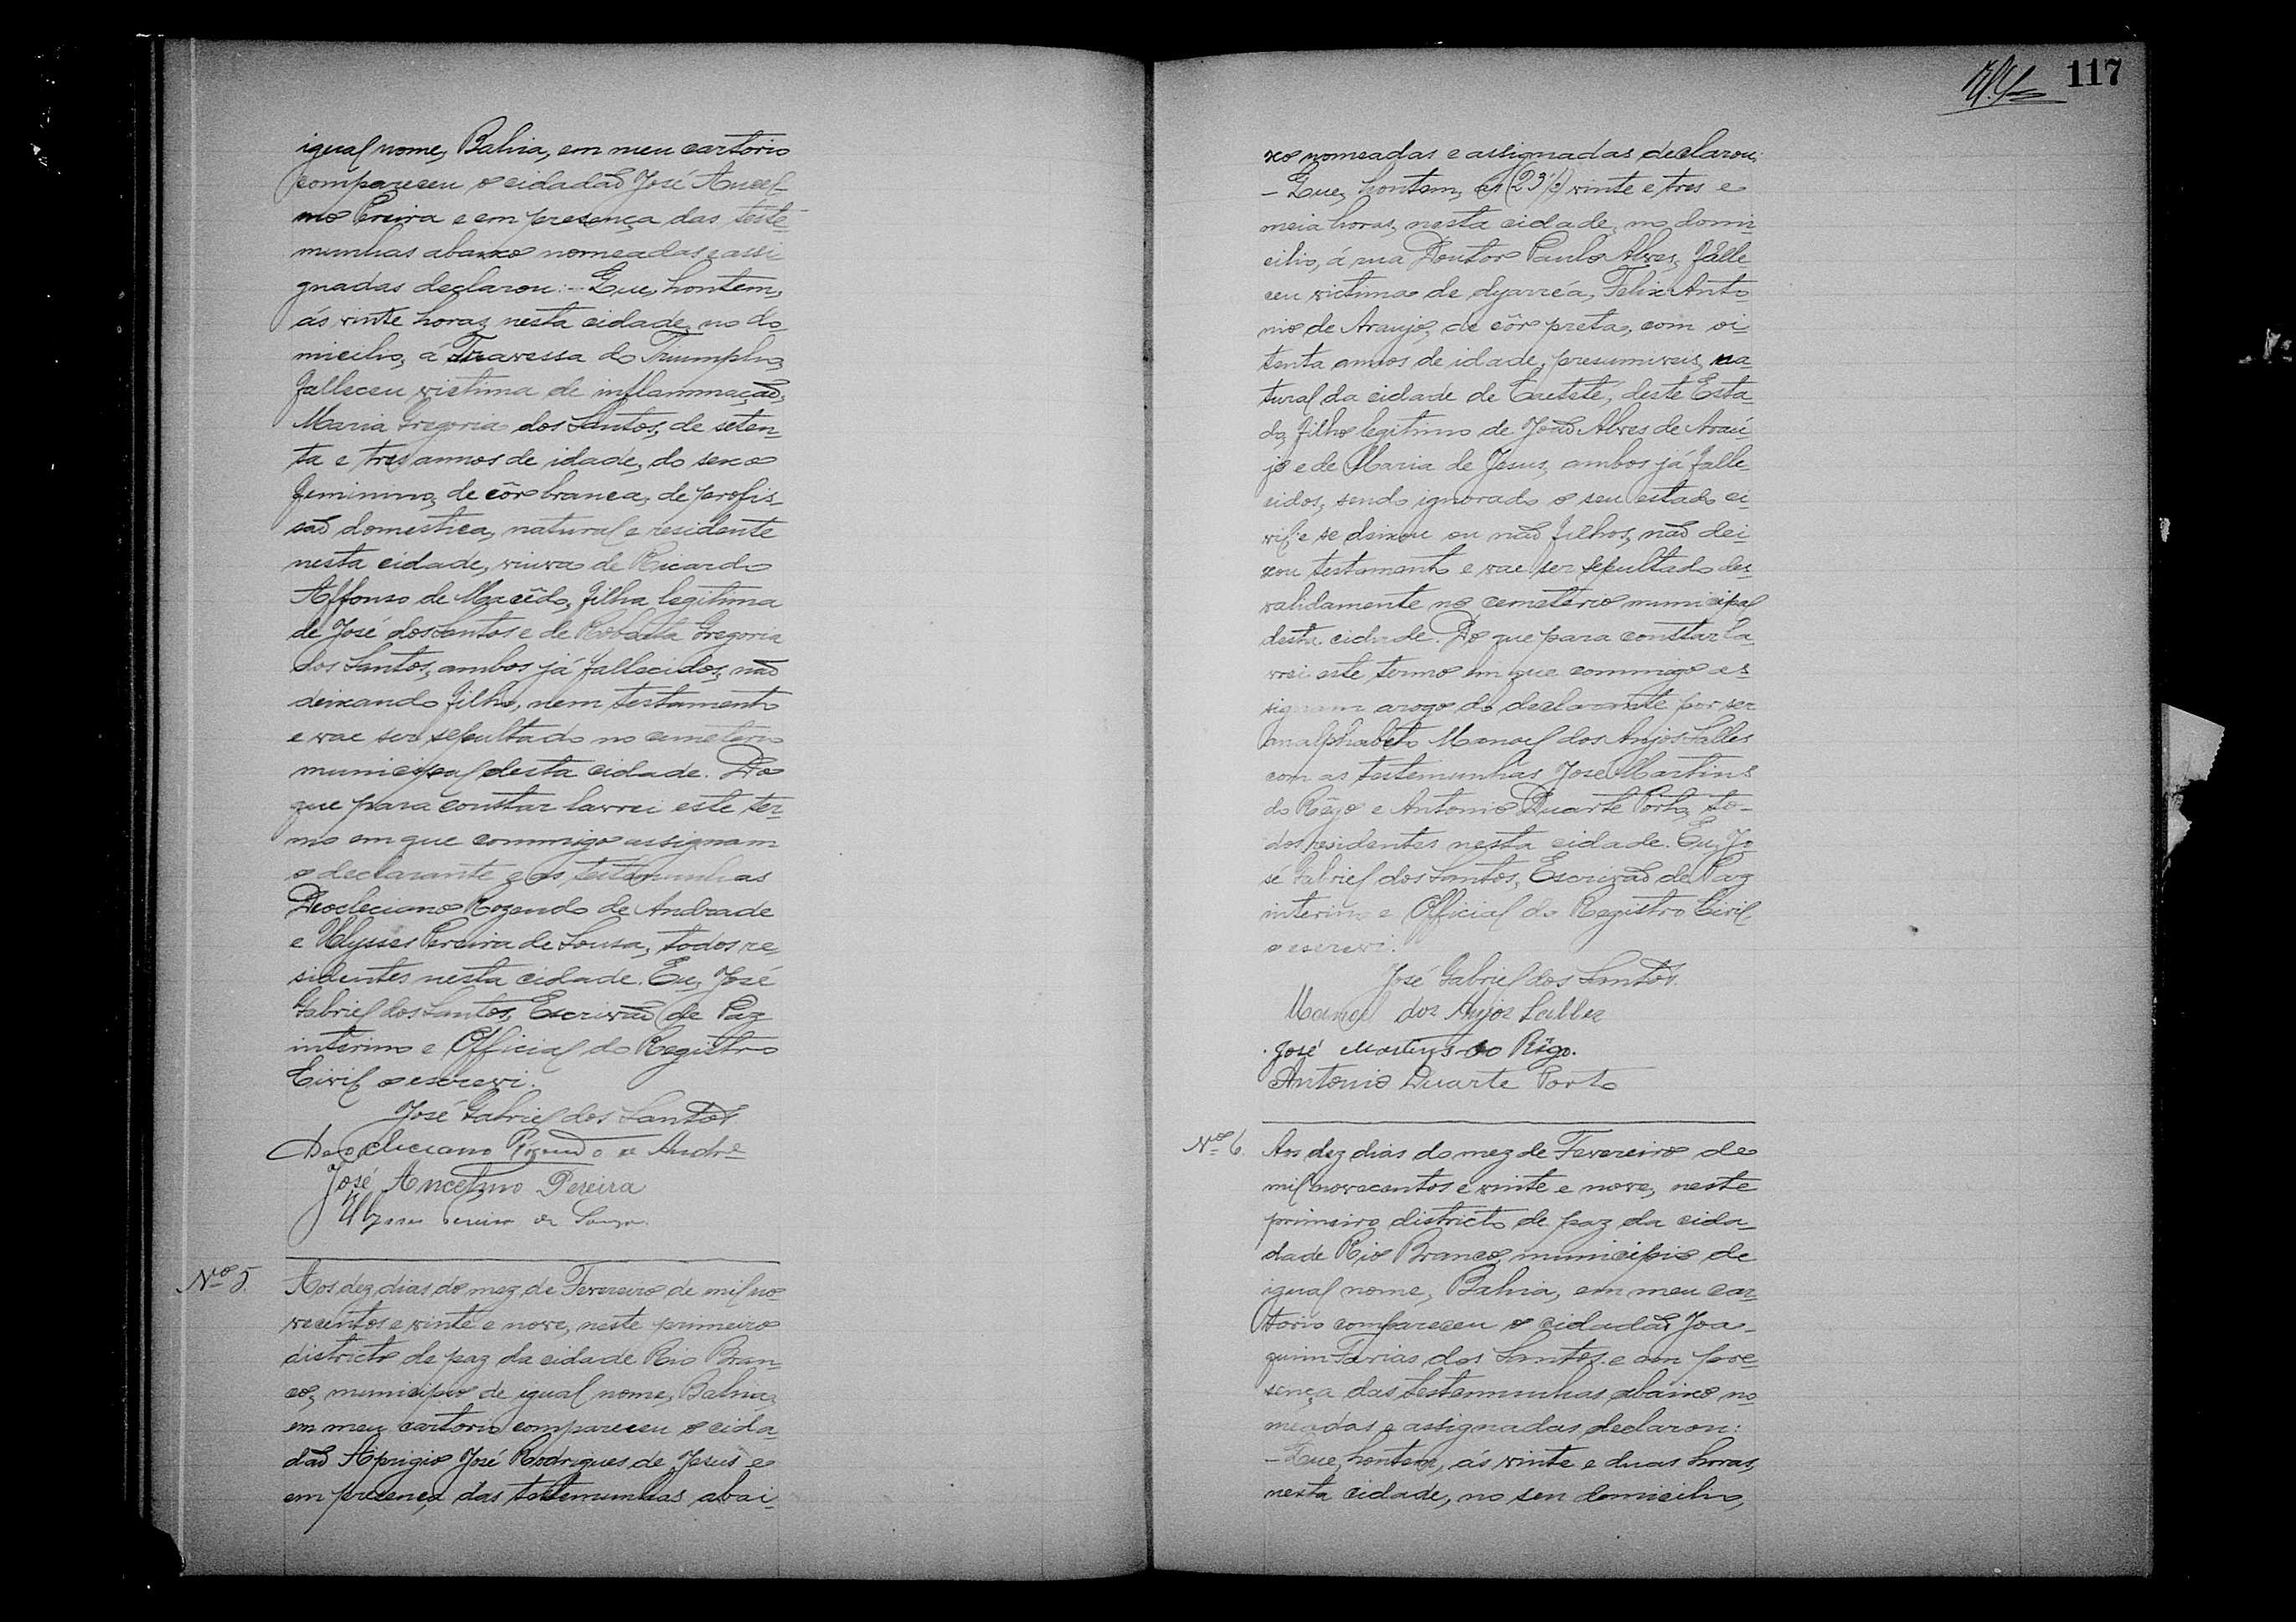 igual nome, Bahia, em meu cartorio
compareceu o cidadão José Ancel-
mo Pereira e em presença das teste-
munhas abaixo nomeadas e assi-
gnadas declarou: - Que, hontem,
ás vinte horas, nesta cidade, no do-
micilio, á Travessa do Triumpho,
falleceu victima de inflammação,
Maria Gregoria dos Santos, de seten-
ta e tres annos de idade, do sexo
feminino, de côr branca, de profis-
são domestica, natural e residente
nesta cidade, viuva de Ricardo
Affonso de Macêdo, filha legitima
de José dos Santos e de Roberta Gregoria
dos Santos, ambos já fallecidos, não
deixando filho, nem testamento
e vae ser sepultado no cemeterio
municipal desta cidade. Do
que para constar lavrei este ter-
mo em que commigo assignam
o declarante e as testemunhas
Deocleciano Rozendo de Andrade
e Ulysses Pereira de Sousa, todos re-
sidentes nesta cidade. Eu, José
Gabriel dos Santos, Escrivão de Paz
interino e Official do Registro
Civil o escrevi.
José Gabriel dos Santos
Deocleciano Rozendo de Andre
José Ancelmo Pereira
Ulysses Pereira de Souza
Nº 5. Aos dez dias do mez de Fevereiro de mil no-
vecentos e vinte e nove, neste primeiro
districto de paz da cidade Rio Bran-
co, municipio de igual nome, Bahia,
em meu cartorio compareceu o cida-
dão Aprigio José Rodrigues de Jesus e
em presença das testemunhas abai-
117
xo nomeadas e assignadas declarou:
- Que, hontem, ás (23½) vinte e tres e
meia horas, nesta cidade, no domi-
cilio, á rua Doutor Paulo Alves, falle-
ceu victima de dyarréa, Felix Anto-
nio de Araujo, de côr preta, com oi-
tenta annos de idade, presumiveis, na-
tural da cidade de Caeteté, deste Esta-
do, filho legitimo de João Alves de Arau-
jo e de Maria de Jesus, ambos já falle-
cidos, sendo ignorado o seu estado ci-
vil e se deixou ou não filhos, não dei-
xou testamento e vae ser sepultado des-
validamente no cemeterio municipal
desta cidade. Do que para constar la-
vrei este termo em que commigo as-
signam arogo do declarante por ser
analphabeto Manoel dos Anjos Salles
com as testemunhas José Martins
do Rêgo e Antonio Duarte Porto, to-
dos residentes nesta cidade. Eu, Jo-
sé Gabriel dos Santos, Escrivão de Paz
interino e Official do Registro Civil
o escrevi.
José Gabriel dos Santos.
Manoel dos Anjos Salles
José Martins do Rêgo.
Antonio Duarte Porto
Nº 6. Aos dez dias do mez de Fevereiro de
mil novecentos e vinte e nove, neste
primeiro districto de paz da cida-
dade Rio Branco, municipio de
igual nome, Bahia, em meu car-
torio compareceu o cidadão Joa-
quim Farias dos Santos e em pre-
sença das testemunhas abaixo no-
meadas e assignadas declarou:
- Que, hontem, ás vinte e duas horas,
nesta cidade, no seu domicilio,